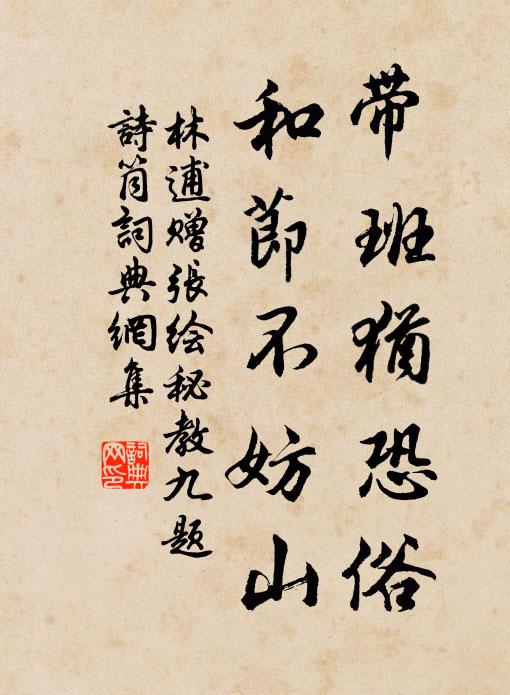 带班猶恐俗
和節不妨山
林逋赠張绘秘教九题
詩筒詞典網集
詞典网印